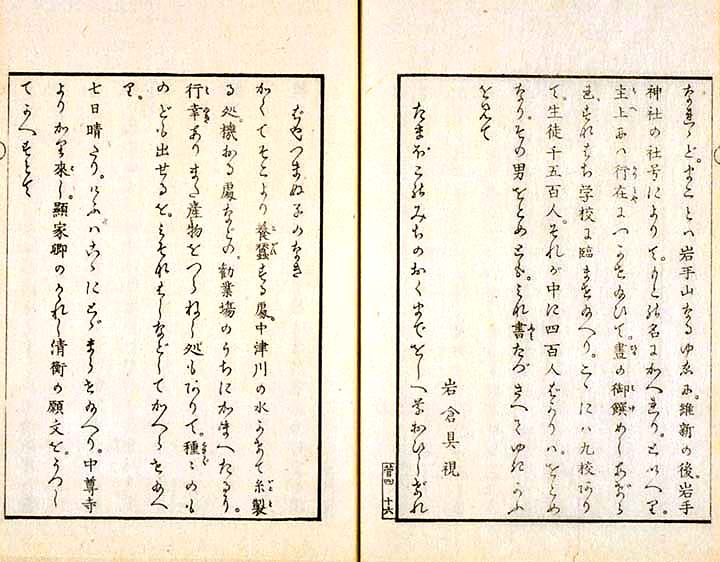 なれど。まことは岩手山なるゆゑに。維新の後。岩手
神社の社号によりて。もとの名にかへれり。といへり。
主上には行在につかせ給ひて。晝の御饌めしあがら
せ。学校に臨ませ給へり。こゝには九校あり
て。生徒千五百人。それが中に四百人ばかりは。をとめ
なり。その男をとめども。みな書たづさへてゆきかふ
をみて
岩倉具視
たまぼこのみちのおくまでをしへ草おひしげれ
十六
ばやつまぬ子のなき
かくてそこより養蠶する處。中津川の水にて糸製
る処。機おる處などの。勧業場のうちにかまへたるに
行幸あり。また産物をつらねし処もありて。種々のも
のども出せるを。みそなはしなどしてかへらせ給へ
り。
七日晴たり。けふはこゝにとゞまらせ給へり。中尊寺
よりかり來し。顯家卿のかゝれし清衡の願文を。うつし